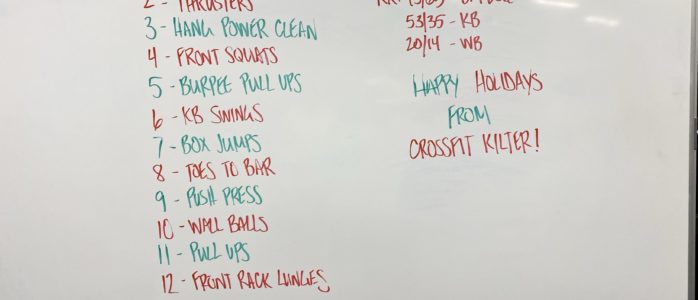 2 - THRUSTERS
3 - HANG POWER CLEAN
4 - FRONT SQUATS
5 - BURPEE PULL UPS
6 - KB SWINGS
7 - BOX JUMPS
8 - TOES TO BAR
9 - PUSH PRESS
10 - WALL BALLS
11 - PULL UPS
12 - FRONT RACK LUNGES
53/35 - KB
20/14 - WB
HAPPY HOLIDAYS
FROM
CROSSFIT KILTER!